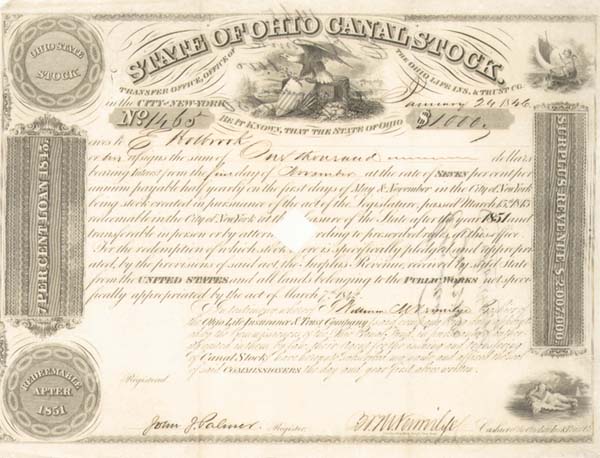 STATE OF OHIO CANAL STOCK.
OHIO STATE
STOCK.
TRANSFER OFFICE, OFFICE OF
THE OHIO LIFE INS. & TRUST CO.
in the CITY of NEW-YORK
January 24 1846
No 1465
BE IT KNOWN, THAT THE STATE OF OHIO
$1000,
owes to E Holbrook
or his assigns the sum of One thousand dollars
bearing Interest from the first day of November at the rate of SEVEN per cent per
annum payable half yearly on the first days of May & November in the City of New York
being stock created in pursuance of the act of the Legislature passed March 13th 1843
redeemable in the City of New York at the Treasurer of the State after the year 1851 and
transferable in person or by attorney according to prescribed rules at this office
For the redemption of which stock there is specifically pledged and appropriated
ated, by the provisions of said act the Surplus Revenue, received by said State
from the UNITED STATES and all lands belonging to the PUBLIC WORKS not specifically
fically appropriated by the act of March 7th 1842
In testimony whereof
the Ohio Life Insurance & Trust Company
of Canal Stock have hereunto subscribed my name and affixed the seal
of said COMMISSIONERS the day and year first above written.
7 PERCENT. LOAN 1843.
SURPLUS REVENUE $2,007,000.
REDEEMABLE
AFTER
1851
Registered
John J. Palmer Register
Cashier